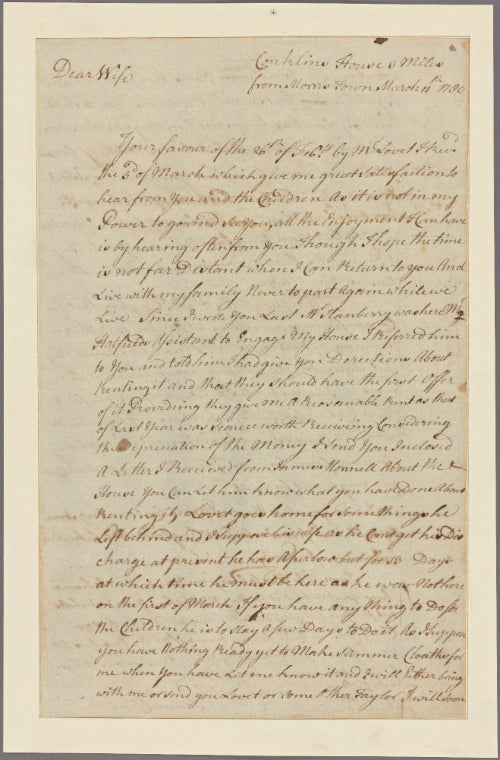 Conklins House 3 Miles
Dear Wife
from Morris Town March 11th 1780
Your favour of the 26th of Feby by Mr Lovet I Recd
the 3d of March which give me great Satisfaction to
hear from You and the Children As it is not in my
Power to go and See You, all the Enjoyment I Can have
is by hearing often from You Though I hope the time
is not far Distant when I Can Return to you And
Live with my family Never to part Again while we
Live Since I wrote You Last Mr Stanberry was here Mr
Assistent to Engage My House I Referred him
to You and told him I had give You Derections About
Renting it and that they should have the first Offer
of it Provideing they give me A Reasonable Rent as that
of Last Year was Scarce worth Receiving Considering
the depreciation of the Money I Send You Inclosed
A Letter I Received from James About the
House You Can Let him know what you have done About
Renting it, Lovet goes home for Some things he
Left behind and I Suppose his wife as he Cant get his Dis
charge at present he has A furlow but for 18 Days
at which time he must be here as he was Not here
on the first of March If you have any thing to Do for
the Children he is to Stay A few Days to Do it As I Suppose
you have Nothing Ready yet to Make Summer Cloaths for
me when You have Let me know it and I will Either bring
with me or Send you Lovet or Some Other Taylor I will Soon